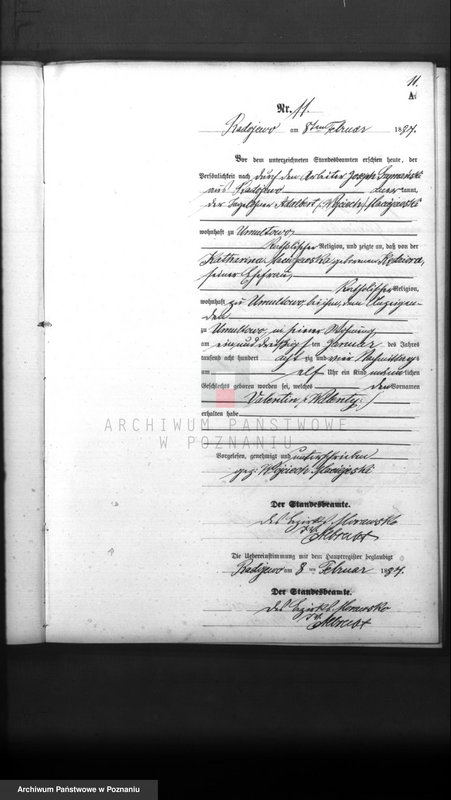 11.
A.
Nr. 11.
Radojewo am 8ten Februar 1884.
Vor dem unterzeichneten Standesbeamten erschien heute, der
Persönlichkeit nach durch den Arbeiter Joseph
aus Radojewo kannt,
der Tagelöhner Adalbert (Wojciech)
wohnhaft zu Umultowo,
katholischer Religion, und zeigte an, daß von der
Katharina geborenen
seiner Ehefrau,
katholischer Religion,
wohnhaft zu Umultowo, bei ihm, dem Anzeigen-
den
zu Umultowo, in seiner Wohnung
am ein und dreißigsten Januar des Jahres
tausend acht hundert achtzig und vier Nachmittags
um elf Uhr ein Kind männlichen
Geschlechts geboren worden sei, welches den Vornamen
Valentin (Walenty)
erhalten habe
ARCHIWUM PAŃSTWOWE
W POZNANIU
Vorgelesen, genehmigt und unterschrieben
gez: Wojciech
Der Standesbeamte.
des Bezirks Morawsko
Die Uebereinstimmung mit dem Hauptregister beglaubigt
Radojewo am 8ten Februar 1884.
Der Standesbeamte.
des Bezirks Morawsko
Archiwum Państwowe w Poznaniu